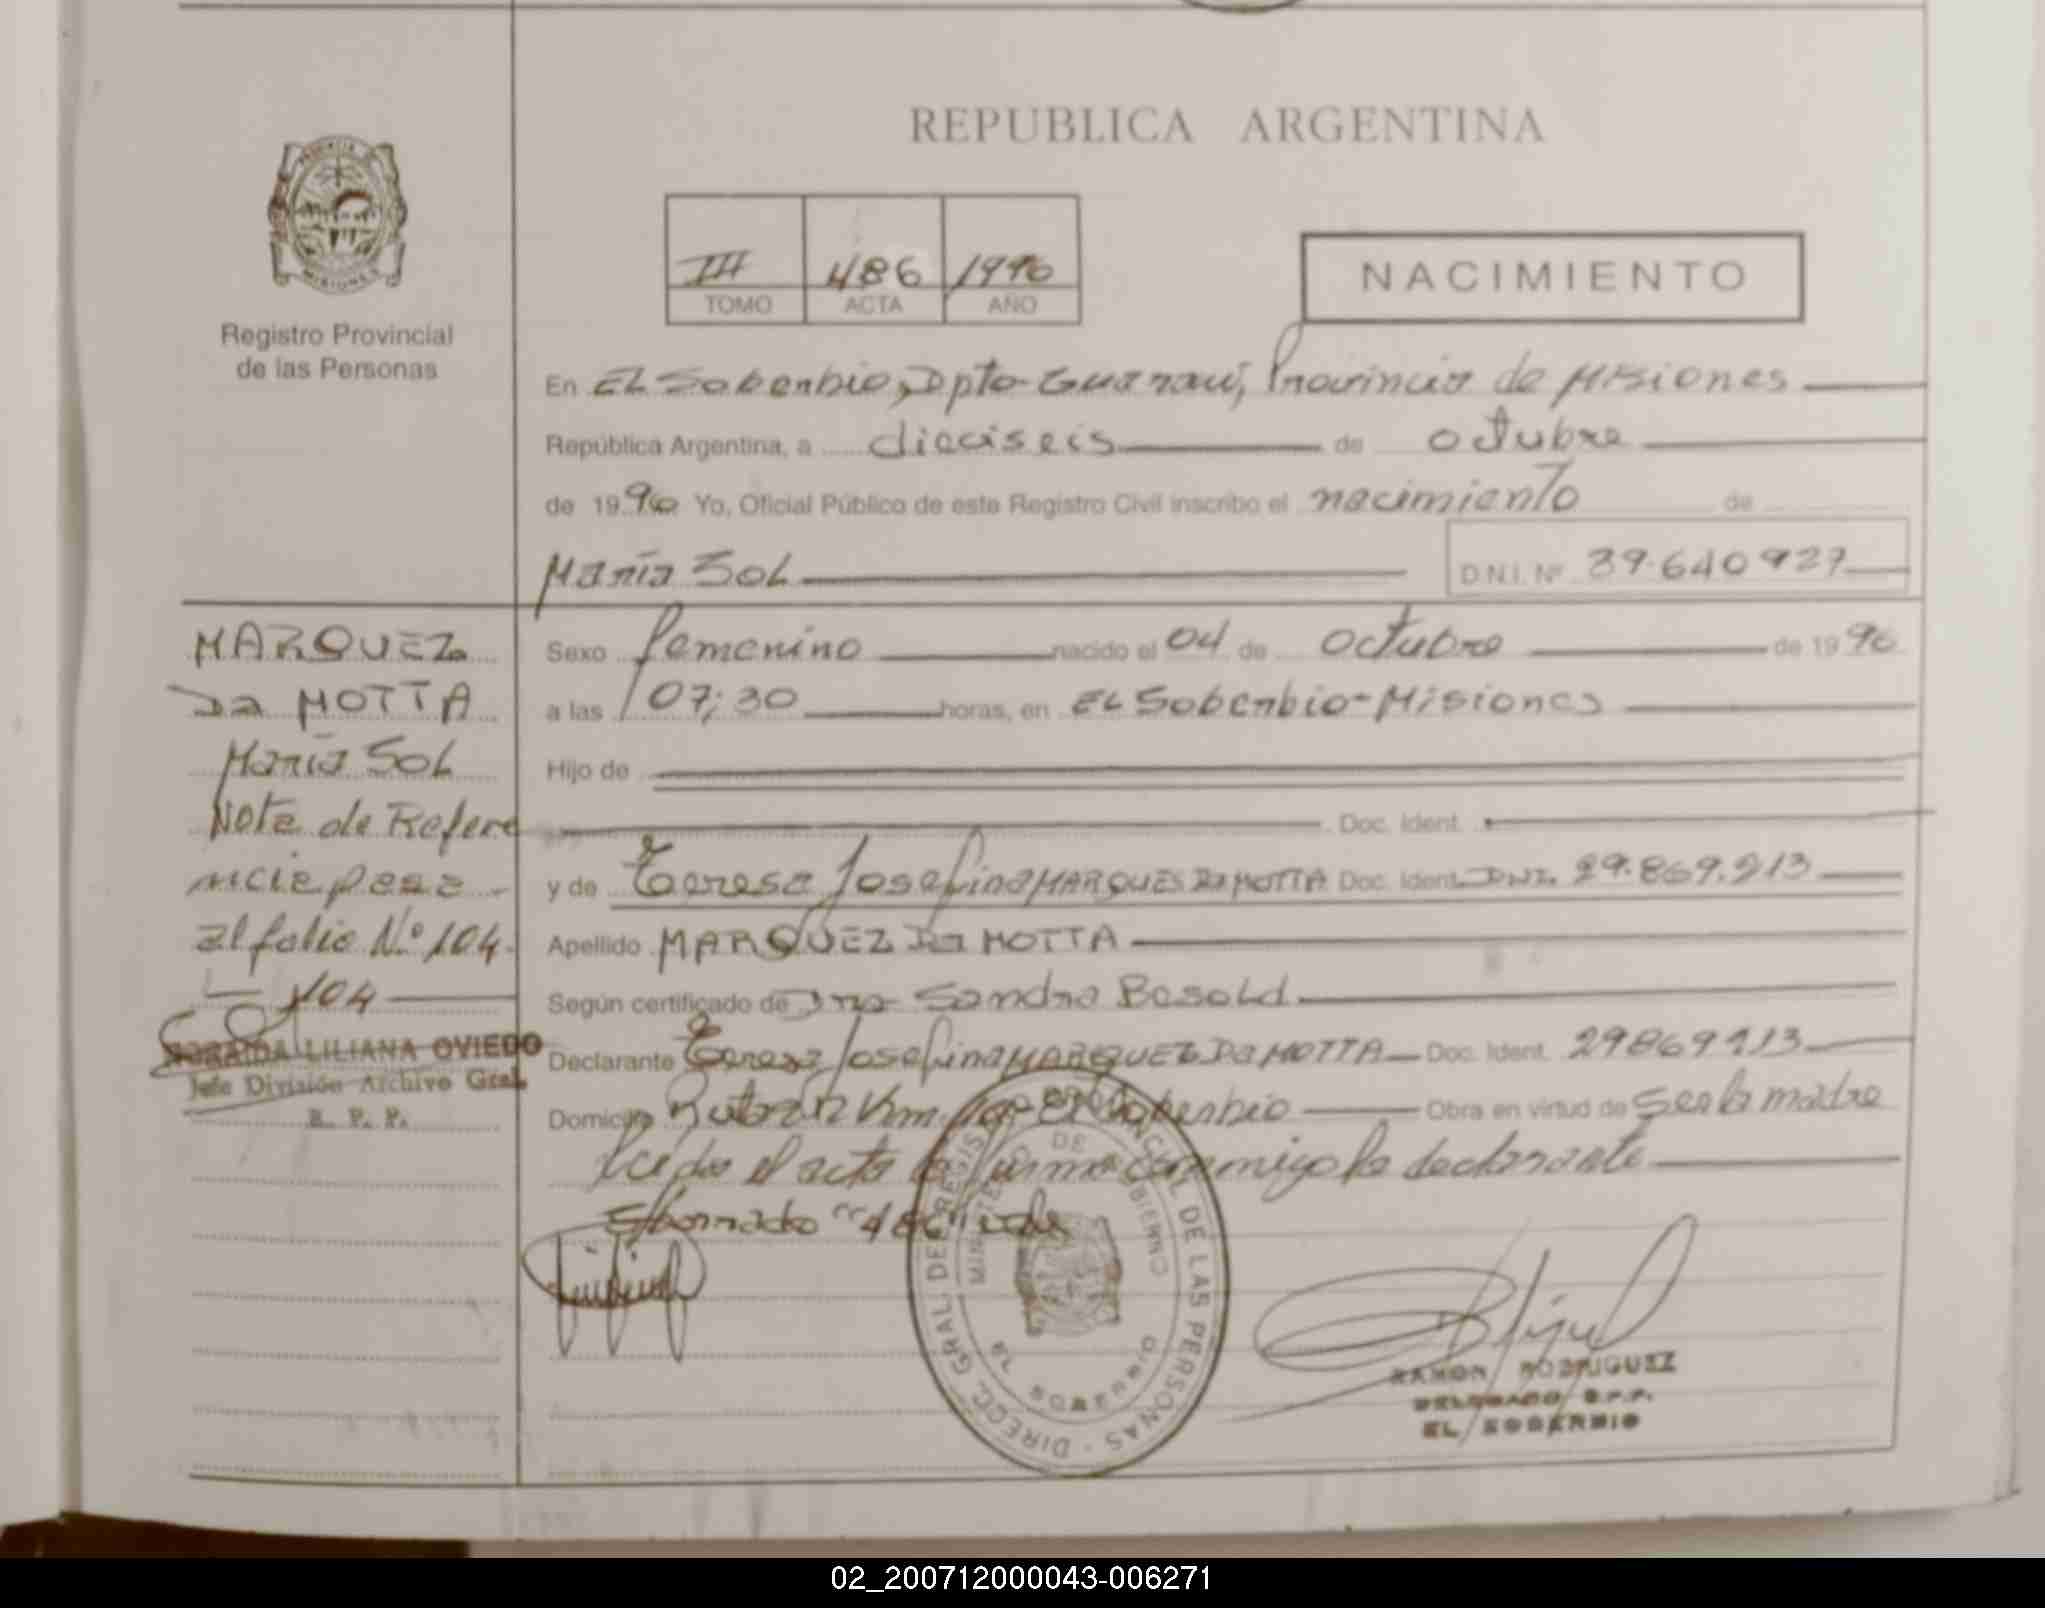 REPUBLICA ARGENTINA
PROVINCIA DE
MISIONES
Registro Provincial
de las Personas
III 486 1996
TOMO ACTA AÑO
NACIMIENTO
En EL Soberbio, Dpto Guaraní, Provincia de Misiones
República Argentina, a dieciseis de octubre
de 1996 Yo, Oficial Público de este Registro Civil inscribo el nacimiento de
María SOL D.N.I. Nº 39.640927
MARQUEZ
Da MOTTA
María SOL
Nota de Refere
ncia pasa
al folio N.º 104.
104
LILIANA OVIEDO
Jefe División Archivo Gral.
R. P. P.
Sexo femenino nacido el 04 de octubre de 1996
a las 07;30 horas, en EL Soberbio-Misiones
Hijo de
Doc. Ident.
y de Teresa Josefina MARQUES Da MOTTA Doc. Ident. DNI. 29.869.913
Apellido MARQUEZ Da MOTTA
Según certificado de Dra Sandra Besold
Declarante Teresa Josefina MARQUEZ Da MOTTA Doc. Ident. 29869913
Domicilio Ruta Km El Soberbio Obra en virtud de Ser la madre
Leida el acta la firma conmigo la declarante
"486" vale
DIRECC. GRAL. DEL REGISTRO PROVINCIAL DE LAS PERSONAS
MINISTERIO DE GOBIERNO
EL SOBERBIO
RAMON RODRIGUEZ
DELEGADO R.P.P.
EL SOBERBIO
02_200712000043-006271